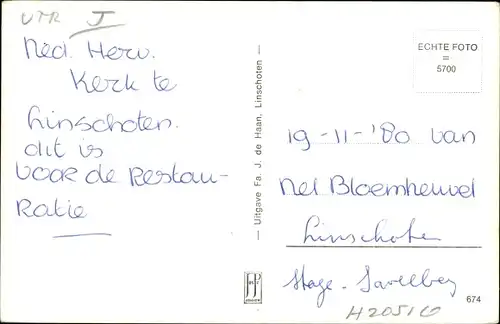 UTR J
Ned. Herv.
Kerk te
Linschoten.
dit is
voor de Restau-
Ratie
— Uitgave Fa. J. de Haan, Linschoten —
ECHTE FOTO
=
5700
19-11-'80 van
Nel Bloemheuvel
Linschoten
Stage - Savelberg
674
H2051G